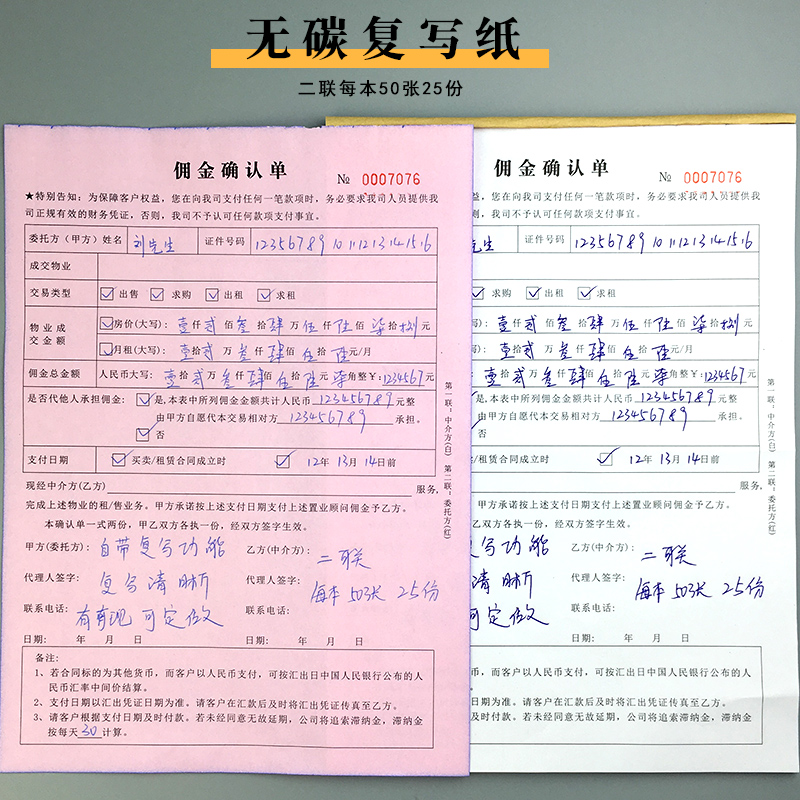 无碳复写纸
二联每本50张25份
佣金确认单
№ 0007076
★特别告知：为保障客户权益，您在向我司支付任何一笔款项时，务必要求我司人员提供我
司正规有效的财务凭证，否则，我司不予认可任何款项支付事宜。
委托方（甲方）姓名 刘先生 证件号码 12356789 10 11 12 13 14 15 16
成交物业
交易类型 ☑出售 ☑求购 ☑出租 ☑求租
物业成交金额 ☑房价(大写)：壹仟贰佰叁拾肆万伍仟陆佰柒拾捌元
☑月租(大写)：壹拾贰万叁仟肆佰伍拾陆元/月
佣金总金额 人民币大写：壹贰叁肆伍陆柒角整￥:1234567元
是否代他人承担佣金： ☑是，本表中所列佣金金额共计人民币123456789元整
由甲方自愿代本交易相对方123456789承担。
☑否
支付日期 ☑买卖/租赁合同成立时 ☑12年13月14日前
现经中介方(乙方) 服务，
完成上述物业的租/售业务。甲方承诺按上述支付日期支付上述置业顾问佣金予乙方。
本确认单一式两份，甲乙双方各执一份，经双方签字生效。
甲方(委托方)：自带复写功能 乙方(中介方)：二联
代理人签字：复写清晰 代理人签字：每本50张 25份
联系电话：有有现可定做 联系电话：
日期： 年 月 日 日期： 年 月 日
备注：
1、若合同标的为其他货币，而客户以人民币支付，可按汇出日中国人民银行公布的人
民币汇率中间价结算。
2、支付日期以汇出凭证日期为准。请客户在汇款后及时将汇出凭证传真至乙方。
3、请客户根据支付日期及时付款。若未经同意无故延期，公司将追索滞纳金，滞纳金
按每天30计算。
第一联：中介方(白) 第二联：委托方(红)
佣金确认单
№ 0007076
益，您在向我司支付任何一笔款项时，务必要求我司人员提供我
，否则，我司不予认可任何款项支付事宜。
先生 证件号码 12356789 10 11 12 13 14 15 16
☑求购 ☑出租 ☑求租
)：壹仟贰佰叁拾肆万伍仟陆佰柒拾捌元
)：壹拾贰万叁仟肆佰伍拾陆元/月
写：壹贰叁肆伍陆柒角整￥:1234567元
是，本表中所列佣金金额共计人民币123456789元整
由甲方自愿代本交易相对方123456789承担。
否
卖/租赁合同成立时 ☑12年13月14日前
服务，
业务。甲方承诺按上述支付日期支付上述置业顾问佣金予乙方。
份，甲乙双方各执一份，经双方签字生效。
复写功能 乙方(中介方)：二联
清晰 代理人签字：每本50张 25份
可定做 联系电话：
月 日 日期： 年 月 日
货币，而客户以人民币支付，可按汇出日中国人民银行公布的人
算。
证日期为准。请客户在汇款后及时将汇出凭证传真至乙方。
期及时付款。若未经同意无故延期，公司将追索滞纳金，滞纳金
第一联：中介方(白) 第二联：委托方(红)